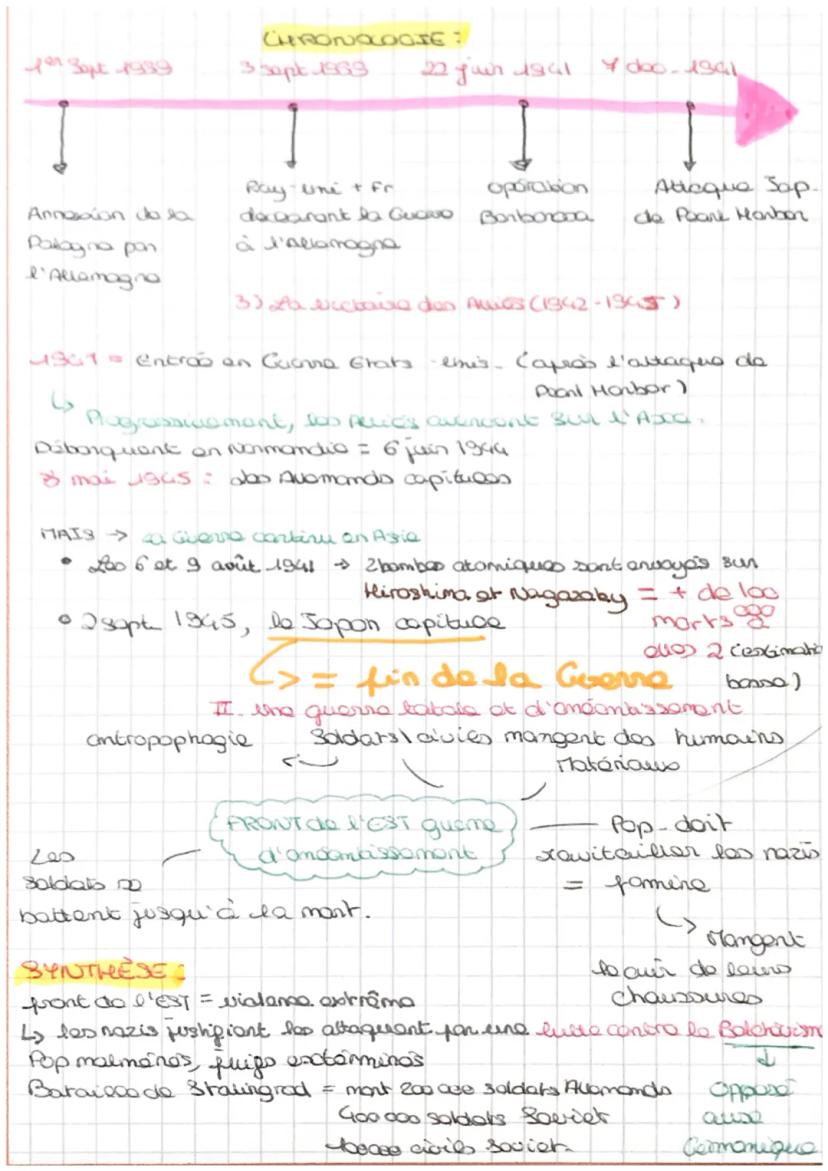 CHRONOLOGIE :
1er Sept 1939 3 sept 1939 22 juin 1941 7 dec. 1941
Ray-uni + Fr opération Attaque Jap.
Annexion de la declarant la Guerre Barbarossa de Pearl Harbor
Pologne par à l'Allemagne
l'Allemagne
3) La victoire des Alliés (1942-1945)
1941 = Entrée en Guerre Etats-Unis. (après l'attaque de
Pearl Harbor)
↳ Progressivement, les Alliés avancent sur l'Axe.
Débarquent en Normandie = 6 juin 1944
8 mai 1945 : les Allemands capitules
MAIS → la Guerre continu en Asie
• Les 6 et 9 août 1941 → 2 bombes atomiques sont envoyés sur
Hiroshima et Nagazaky = + de 100
• 2 sept 1945, le Japon capitule morts 000
les 2 (estimatio
↳ = fin de la Guerre basse)
II. Une guerre totale et d'anéantissement
antropophagie Soldats \ civiles mangent des humains
Matériaux
FRONT de l'EST guerre Pop. doit
Les d'anéantissement ravitailler les nazis
soldats se = famine
battent jusqu'à la mort.
↳ Mangent
SYNTHÈSE : le cuir de leurs
front de l'EST = violence extrême chaussures
↳ les nazis justifiant les attaquent par une lutte contre le Bolchévism
Pop malmenés, juifs exterminés ↓
Bataille de Stalingrad = mort 200 000 soldats Allemands Opposé
400 000 soldats Soviet aux
100000 civils Soviet. Germanique